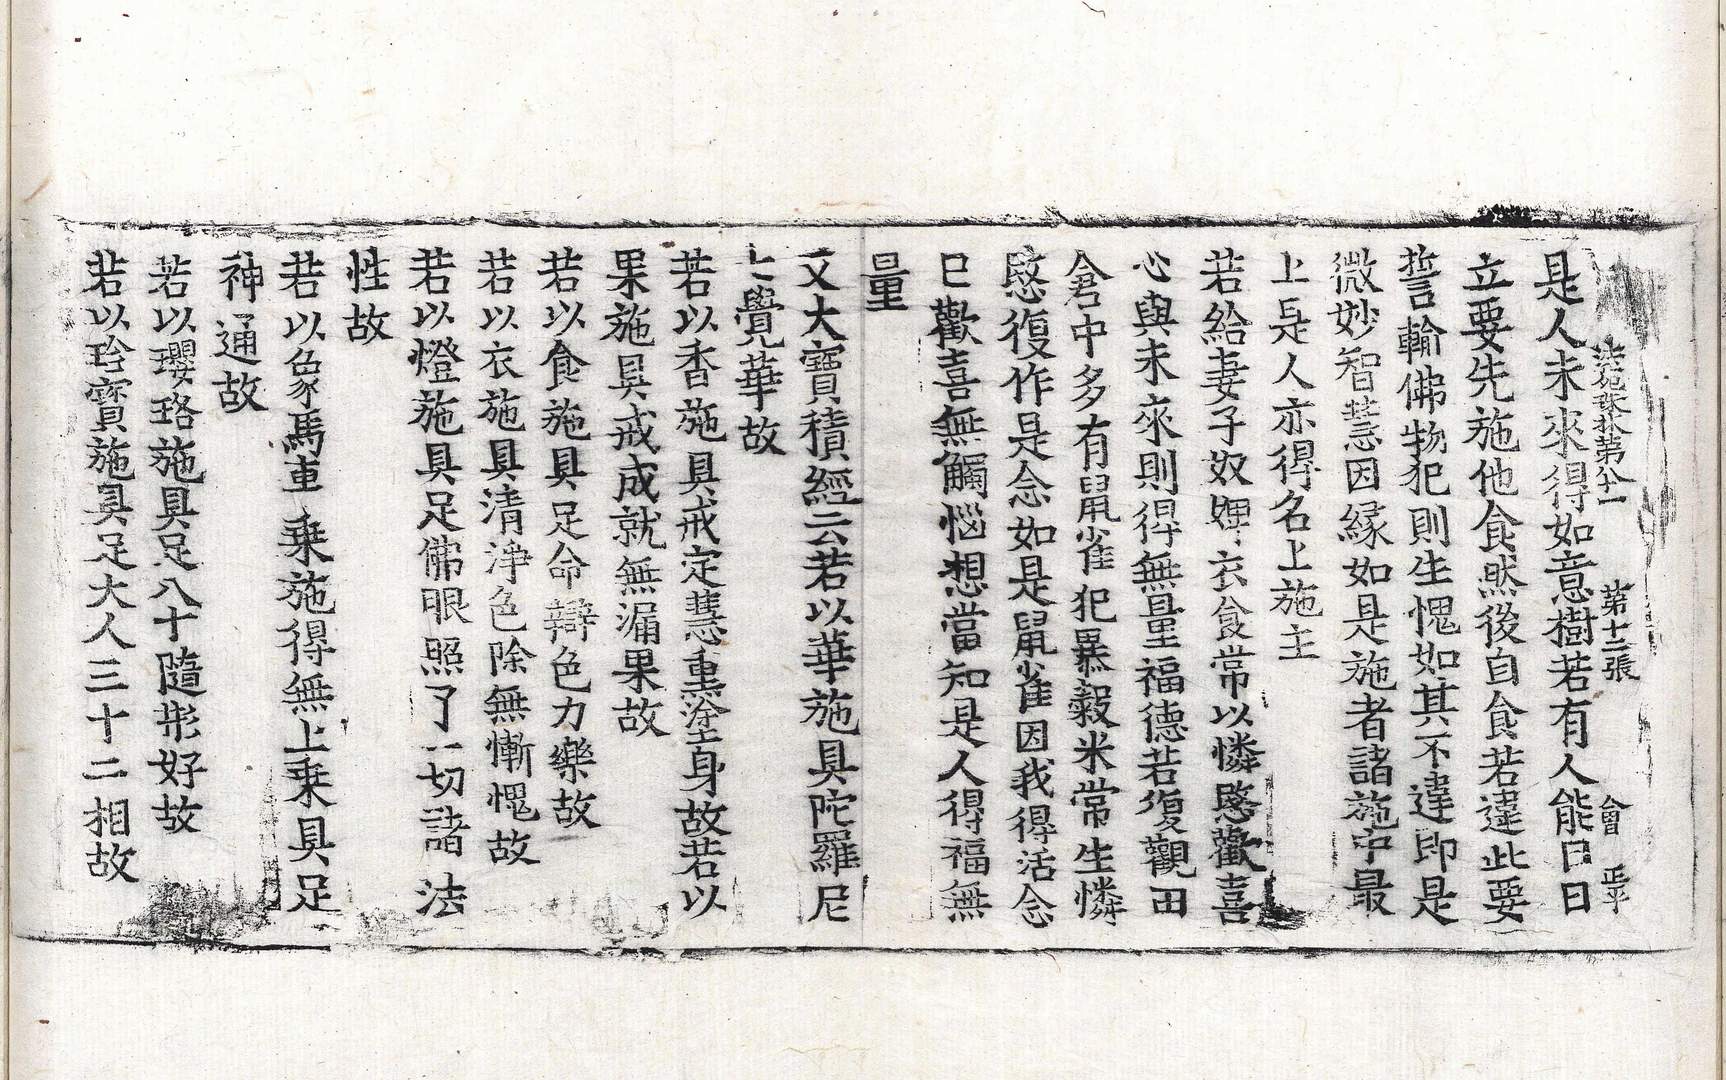 法苑珠林第八十一　第十三張　會　正平
是人未來得如意樹若有人能日日
立要先施他食然後自食若違此要
誓輸佛物犯則生愧如其不違即是
微妙智慧因緣如是施者諸施中最
上是人亦得名上施主
若給妻子奴婢衣食常以憐愍歡喜
心與未來則得無量福德若復觀田
倉中多有鼠雀犯暴穀米常生憐
愍復作是念如是鼠雀因我得活念
已歡喜無觸惱想當知是人得福無
量
又大寶積經云若以華施具陀羅尼
七覺華故
若以香施具戒定慧熏塗身故若以
果施具戒成就無漏果故
若以食施具足命辯色力樂故
若以衣施具清淨色除無慚愧故
若以燈施具足佛眼照了一切諸法
性故
若以象馬車乘施得無上乘具足
神通故
若以瓔珞施具足八十隨形好故
若以珍寶施具足大人三十二相故